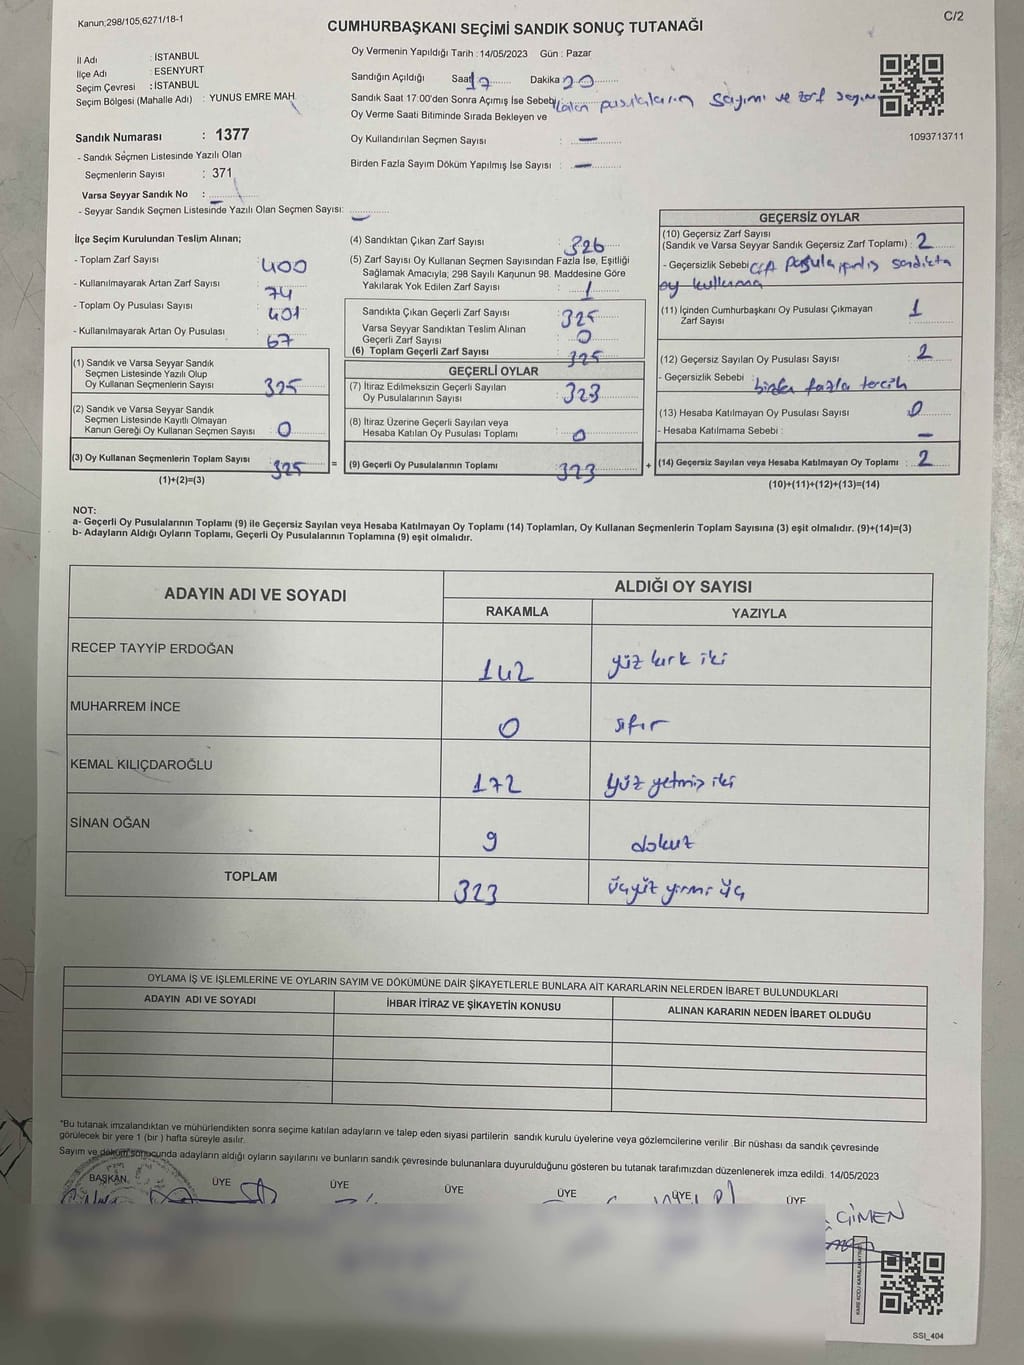 Kanun;298/105,6271/18-1
C/2
CUMHURBAŞKANI SEÇİMİ SANDIK SONUÇ TUTANAĞI
İl Adı : İSTANBUL
İlçe Adı : ESENYURT
Seçim Çevresi : İSTANBUL
Seçim Bölgesi (Mahalle Adı) : YUNUS EMRE MAH.
Oy Vermenin Yapıldığı Tarih : 14/05/2023 Gün : Pazar
Sandığın Açıldığı Saat 17 Dakika 20
Sandık Saat 17:00'den Sonra Açımış İse Sebebi kalan pusulaların sayımı ve zarf sayımı
Oy Verme Saati Bitiminde Sırada Bekleyen ve
Oy Kullandırılan Seçmen Sayısı : —
Birden Fazla Sayım Döküm Yapılmış İse Sayısı : —
1093713711
Sandık Numarası : 1377
- Sandık Seçmen Listesinde Yazılı Olan
Seçmenlerin Sayısı : 371
Varsa Seyyar Sandık No : —
- Seyyar Sandık Seçmen Listesinde Yazılı Olan Seçmen Sayısı: —
İlçe Seçim Kurulundan Teslim Alınan;
- Toplam Zarf Sayısı : 400
- Kullanılmayarak Artan Zarf Sayısı : 74
- Toplam Oy Pusulası Sayısı : 401
- Kullanılmayarak Artan Oy Pusulası : 67
(1) Sandık ve Varsa Seyyar Sandık
Seçmen Listesinde Yazılı Olup
Oy Kullanan Seçmenlerin Sayısı : 325
(2) Sandık ve Varsa Seyyar Sandık
Seçmen Listesinde Kayıtlı Olmayan
Kanun Gereği Oy Kullanan Seçmen Sayısı : 0
(3) Oy Kullanan Seçmenlerin Toplam Sayısı : 325
(1)+(2)=(3)
(4) Sandıktan Çıkan Zarf Sayısı : 326
(5) Zarf Sayısı Oy Kullanan Seçmen Sayısından Fazla İse, Eşitliği
Sağlamak Amacıyla, 298 Sayılı Kanunun 98. Maddesine Göre
Yakılarak Yok Edilen Zarf Sayısı : 1
Sandıkta Çıkan Geçerli Zarf Sayısı : 325
Varsa Seyyar Sandıktan Teslim Alınan
Geçerli Zarf Sayısı : 0
(6) Toplam Geçerli Zarf Sayısı : 325
GEÇERLİ OYLAR
(7) İtiraz Edilmeksizin Geçerli Sayılan
Oy Pusulalarının Sayısı : 323
(8) İtiraz Üzerine Geçerli Sayılan veya
Hesaba Katılan Oy Pusulası Toplamı : 0
= (9) Geçerli Oy Pusulalarının Toplamı : 323
GEÇERSİZ OYLAR
(10) Geçersiz Zarf Sayısı
(Sandık ve Varsa Seyyar Sandık Geçersiz Zarf Toplamı) : 2
- Geçersizlik Sebebi : pusula yanlış sandıkta
oy kullanma
(11) İçinden Cumhurbaşkanı Oy Pusulası Çıkmayan
Zarf Sayısı : 1
(12) Geçersiz Sayılan Oy Pusulası Sayısı : 2
- Geçersizlik Sebebi : birden fazla tercih
(13) Hesaba Katılmayan Oy Pusulası Sayısı : 0
- Hesaba Katılmama Sebebi : —
+ (14) Geçersiz Sayılan veya Hesaba Katılmayan Oy Toplamı : 2
(10)+(11)+(12)+(13)=(14)
NOT:
a- Geçerli Oy Pusulalarının Toplamı (9) ile Geçersiz Sayılan veya Hesaba Katılmayan Oy Toplamı (14) Toplamları, Oy Kullanan Seçmenlerin Toplam Sayısına (3) eşit olmalıdır. (9)+(14)=(3)
b- Adayların Aldığı Oyların Toplamı, Geçerli Oy Pusulalarının Toplamına (9) eşit olmalıdır.
ADAYIN ADI VE SOYADI ALDIĞI OY SAYISI
RAKAMLA YAZIYLA
RECEP TAYYİP ERDOĞAN 142 yüz kırk iki
MUHARREM İNCE 0 sıfır
KEMAL KILIÇDAROĞLU 172 yüz yetmiş iki
SİNAN OĞAN 9 dokuz
TOPLAM 323 üçyüz yirmi üç
OYLAMA İŞ VE İŞLEMLERİNE VE OYLARIN SAYIM VE DÖKÜMÜNE DAİR ŞİKAYETLERLE BUNLARA AİT KARARLARIN NELERDEN İBARET BULUNDUKLARI
ADAYIN ADI VE SOYADI İHBAR İTİRAZ VE ŞİKAYETİN KONUSU ALINAN KARARIN NEDEN İBARET OLDUĞU
*Bu tutanak imzalandıktan ve mühürlendikten sonra seçime katılan adayların ve talep eden siyasi partilerin sandık kurulu üyelerine veya gözlemcilerine verilir .Bir nüshası da sandık çevresinde
görülecek bir yere 1 (bir ) hafta süreyle asılır.
Sayım ve döküm sonucunda adayların aldığı oyların sayılarını ve bunların sandık çevresinde bulunanlara duyurulduğunu gösteren bu tutanak tarafımızdan düzenlenerek imza edildi. 14/05/2023
BAŞKAN ÜYE ÜYE ÜYE ÜYE ÜYE ÜYE
ÇİMEN
KARE KODU KARALAMAYINIZ
SSI_404